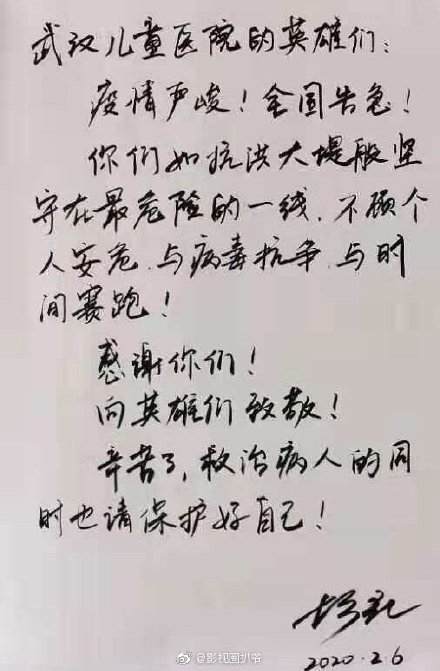 武汉儿童医院的英雄们：
疫情严峻！全国告急！
你们如抗洪大堤般坚
守在最危险的一线，不顾个
人安危，与病毒抗争，与时
间赛跑！
感谢你们！
向英雄们致敬！
辛苦了，救治病人的同
时也请保护好自己！
2020.2.6
@影视圈扒爷